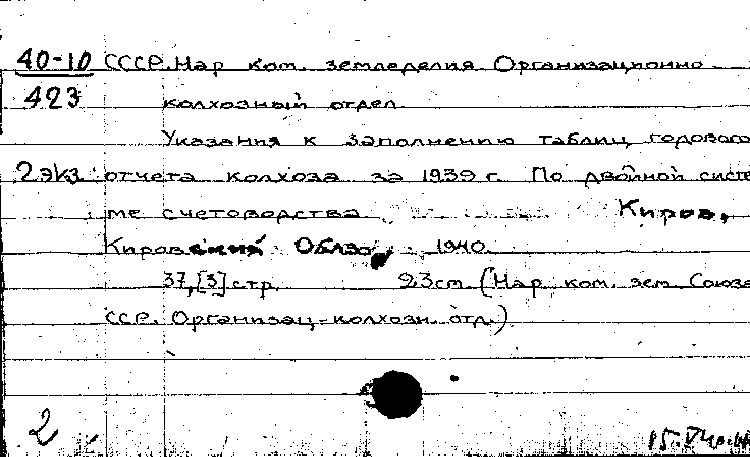 40-10 СССР. Нар. ком. земледелия. Организационно-
423 колхозный отдел.
Указания к заполнению таблиц годового
2 экз. отчета колхоза за 1939 г. По двойной систе-
ме счетоводства. Киров,
Кировский Облзо, 1940.
37,[3] стр. 23 см. (Нар. ком. зем. Союза
ССР. Организац.-колхозн. отд.)
2